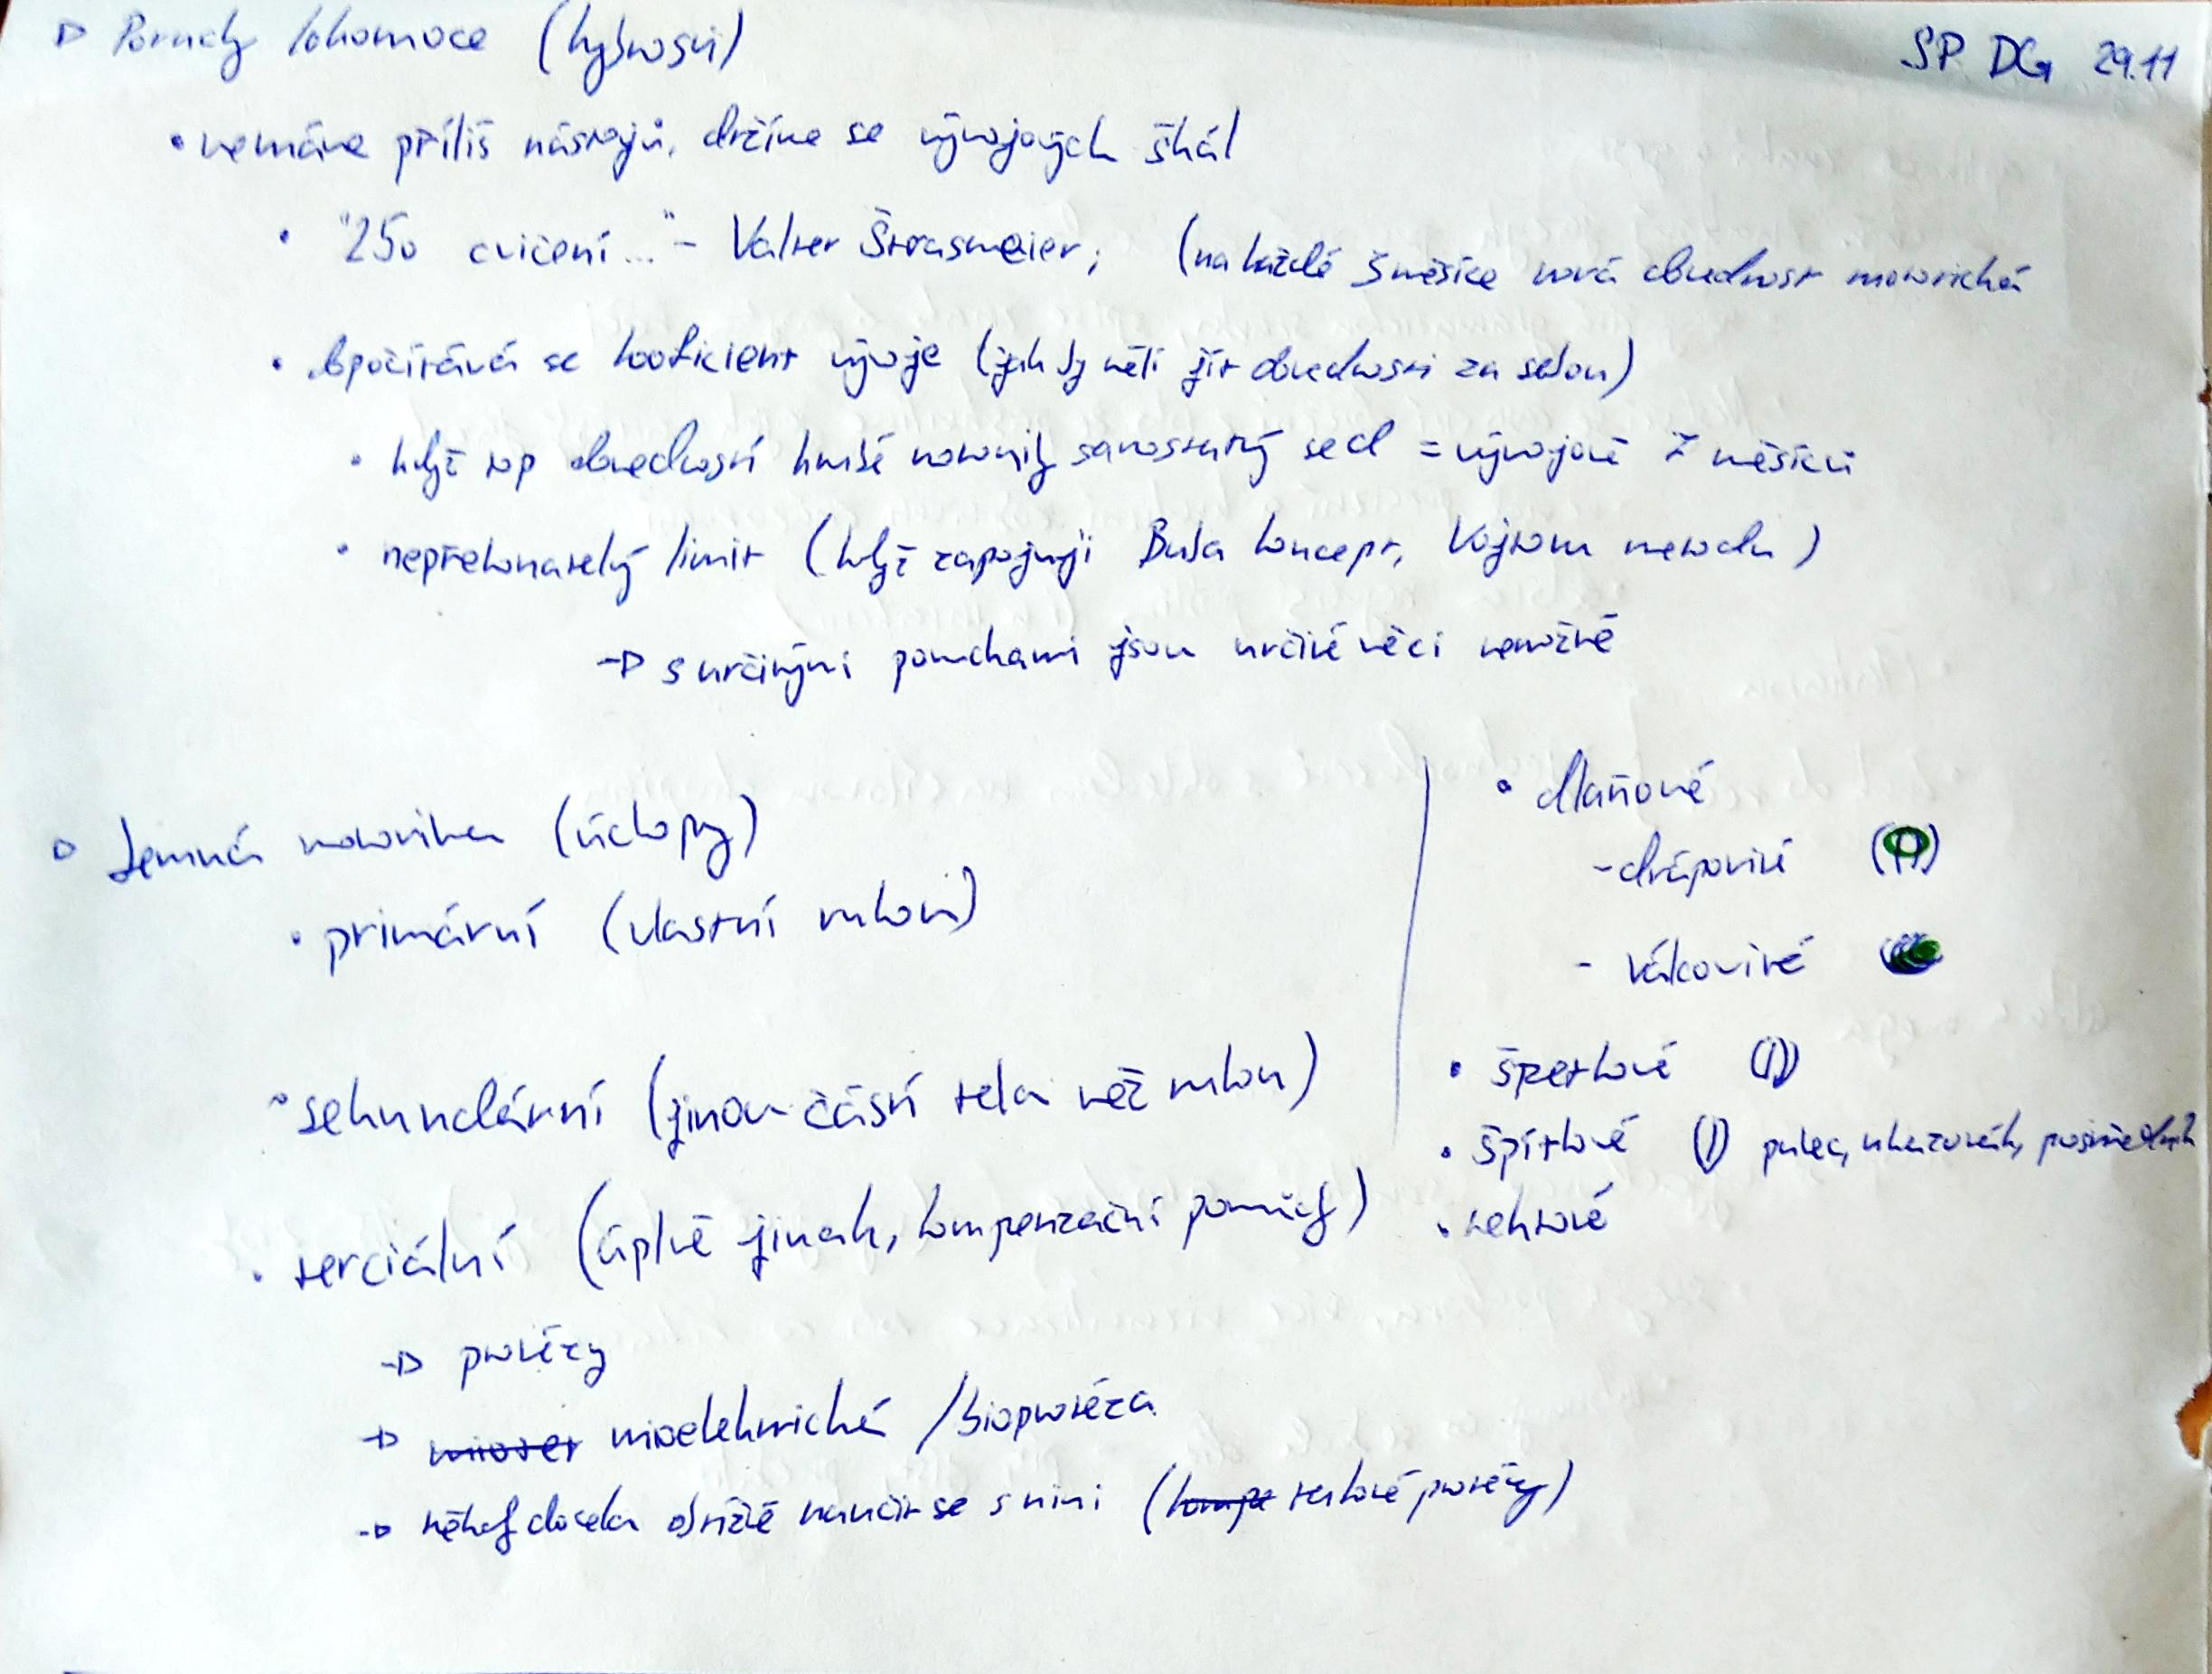 Poruchy lokomoce (hybnosti)
SP DG 29.11
• nemáme příliš nástrojů, držíme se vývojových škál
• "250 cvičení..." - Valter Štrasmeier; (na každé měsíce nová dovednost motorická
• počítává se koeficient vývoje (jak by měli jít dovednosti za sebou)
• když top dovedností hrubé motoriky samostatný sed = vývojově 7 měsíců
• nepřekonatelný limit (když zapojuji Boba koncept, Vojtovu metodu)
→ s určitými poruchami jsou určité věci nemožné
Jemná motorika (úchopy)
• primární (vlastní rukou)
• sekundární (jinou částí těla než rukou)
• terciální (úplně jinak, kompenzační pomůcky)
→ protézy
→ mioelektrická / bioprotéza
→ někdy docela obtížé naučit se s nimi (kompe tahové protézy)
• dlaňové
- drápovité
- válcovité
• špetkové
• špitkové palec, ukazovák, prostředník
• nehtové